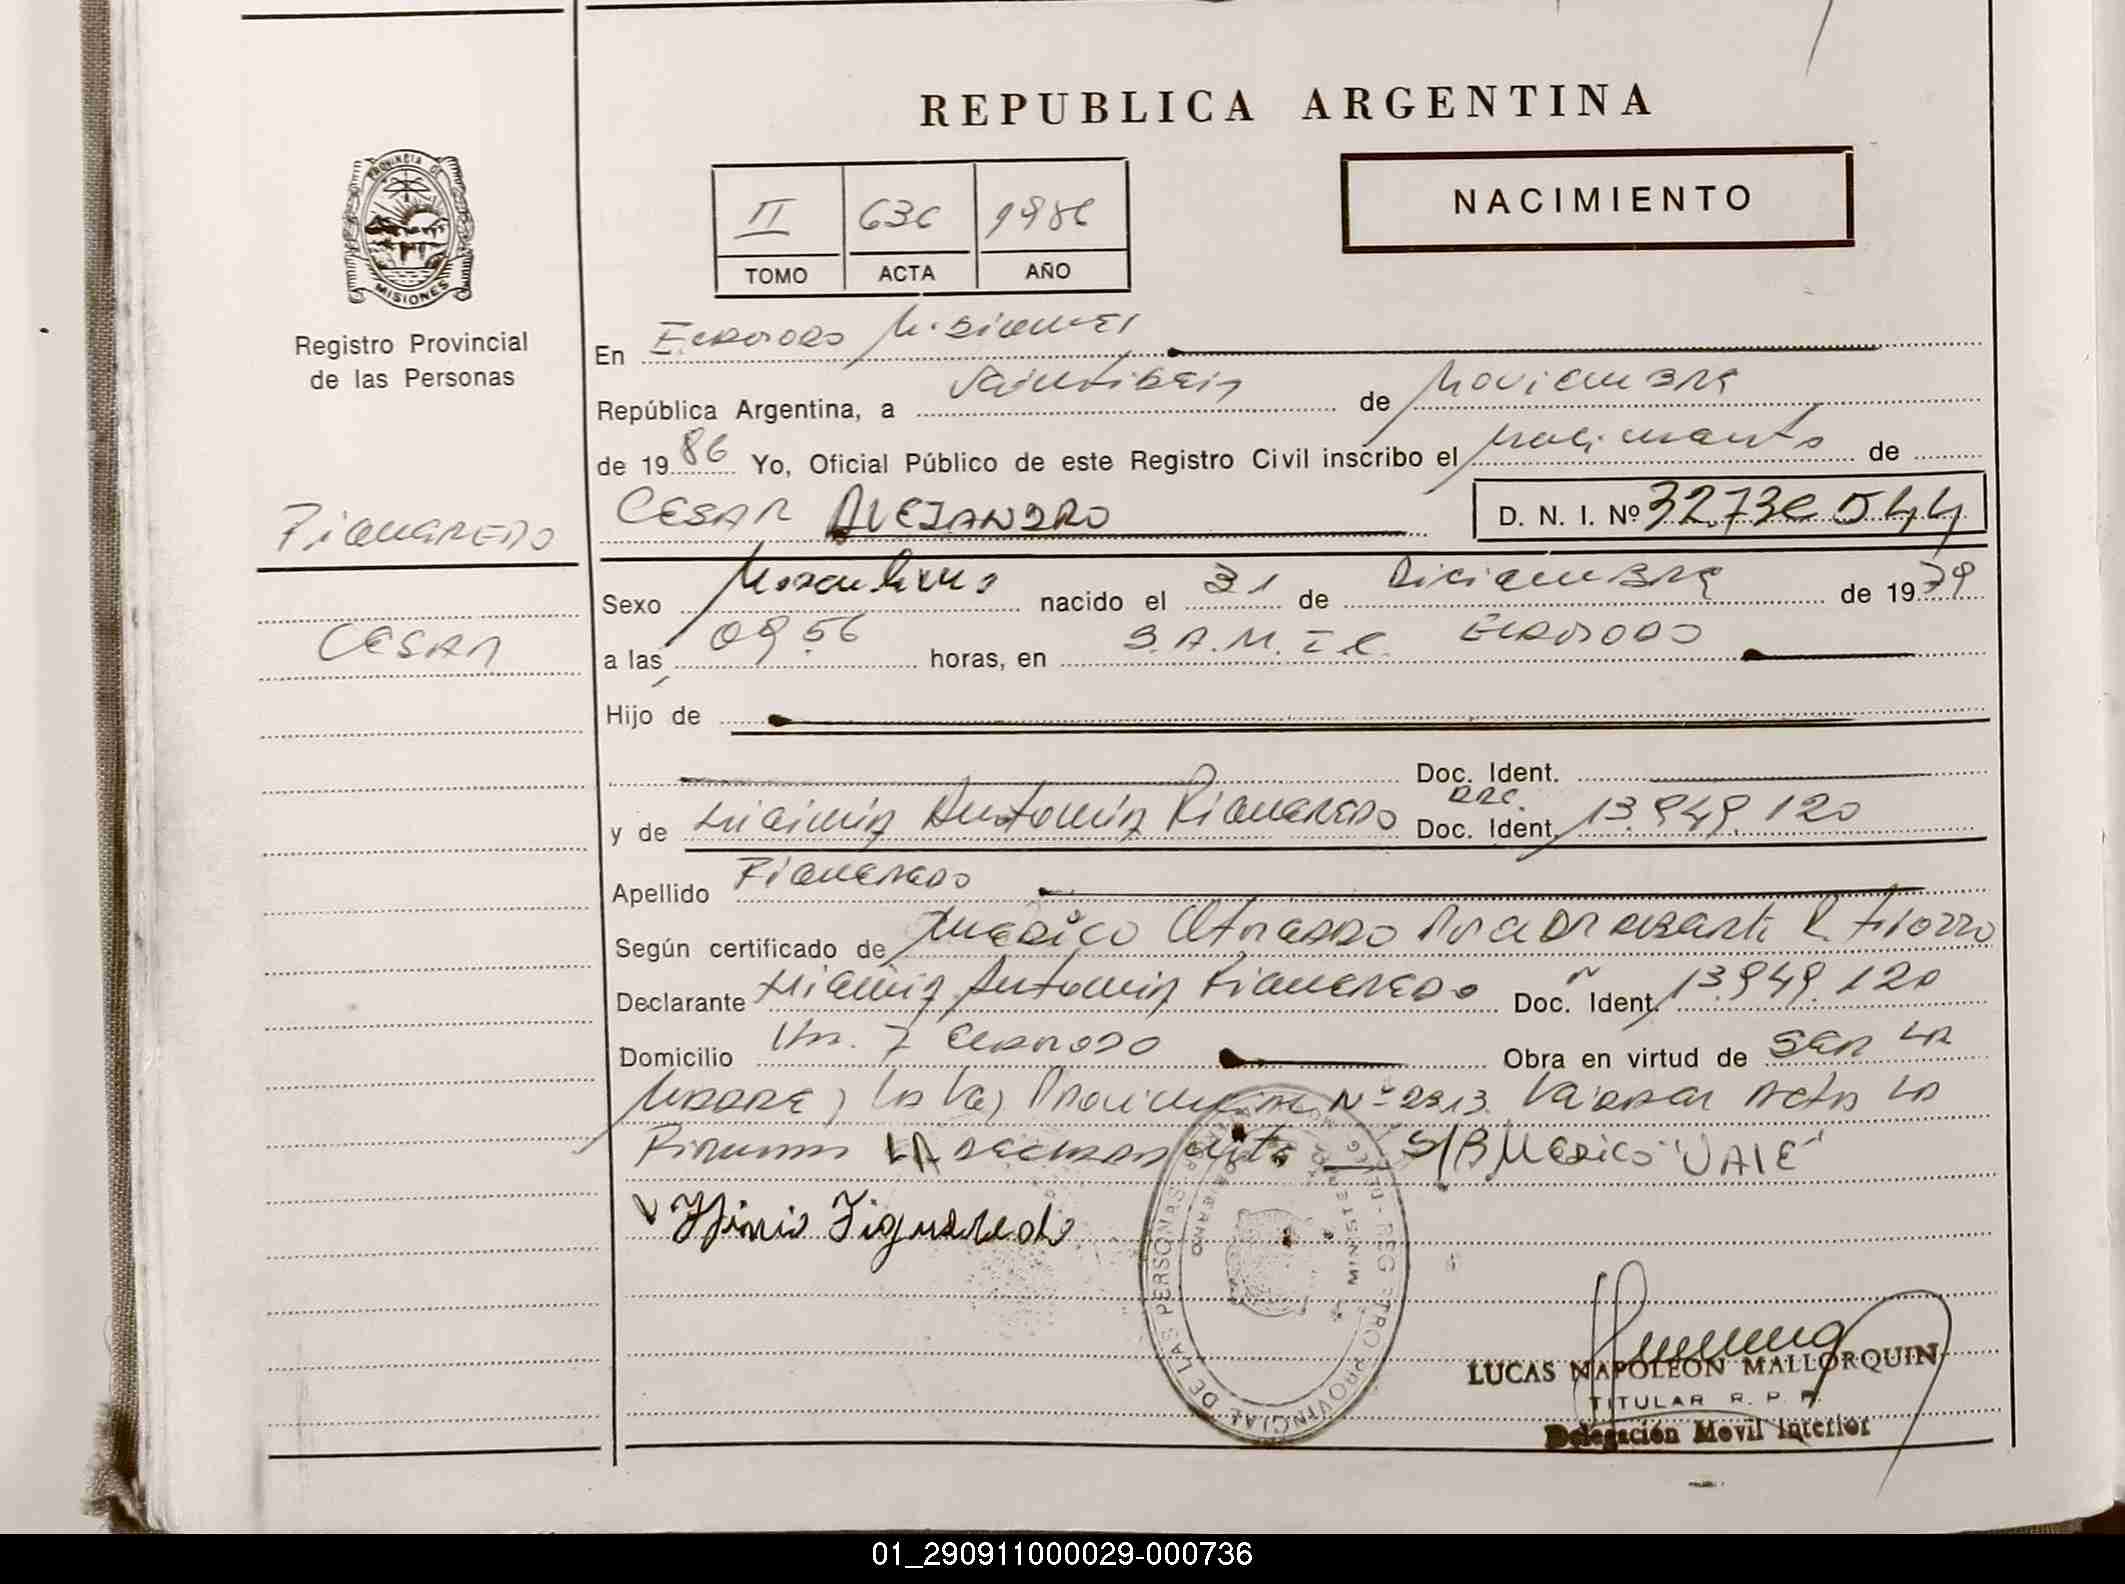 REPUBLICA ARGENTINA
PROVINCIA DE MISIONES
Registro Provincial
de las Personas
II 636 1986
TOMO ACTA AÑO
NACIMIENTO
En Eldorado Misiones
República Argentina, a Veintiseis de Noviembre
de 1986 Yo, Oficial Público de este Registro Civil inscribo el nacimiento de
Figueredo
CESAR ALEJANDRO D. N. I. Nº 32.736.544
Sexo Masculino nacido el 31 de Diciembre de 1979
Cesar
a las 09.56 horas, en S.A.M.I.C. Eldorado
Hijo de
Doc. Ident.
y de Higinia Antonia Figueredo Doc. Ident. 13.949.120
Apellido Figueredo
Según certificado de Medico
Declarante Higinia Antonia Figueredo Doc. Ident. 13.949.120
Domicilio Km. 7 Eldorado Obra en virtud de ser la
Madre, Ley Provincial Nº 2313. Leida el Acta la
Firma la declarante S/B Medico "VALE"
Figueredo
REGISTRO PROVINCIAL DE LAS PERSONAS
LUCAS NAPOLEON MALLORQUIN
TITULAR R. P. P.
Delegación Movil Interior
01_290911000029-000736